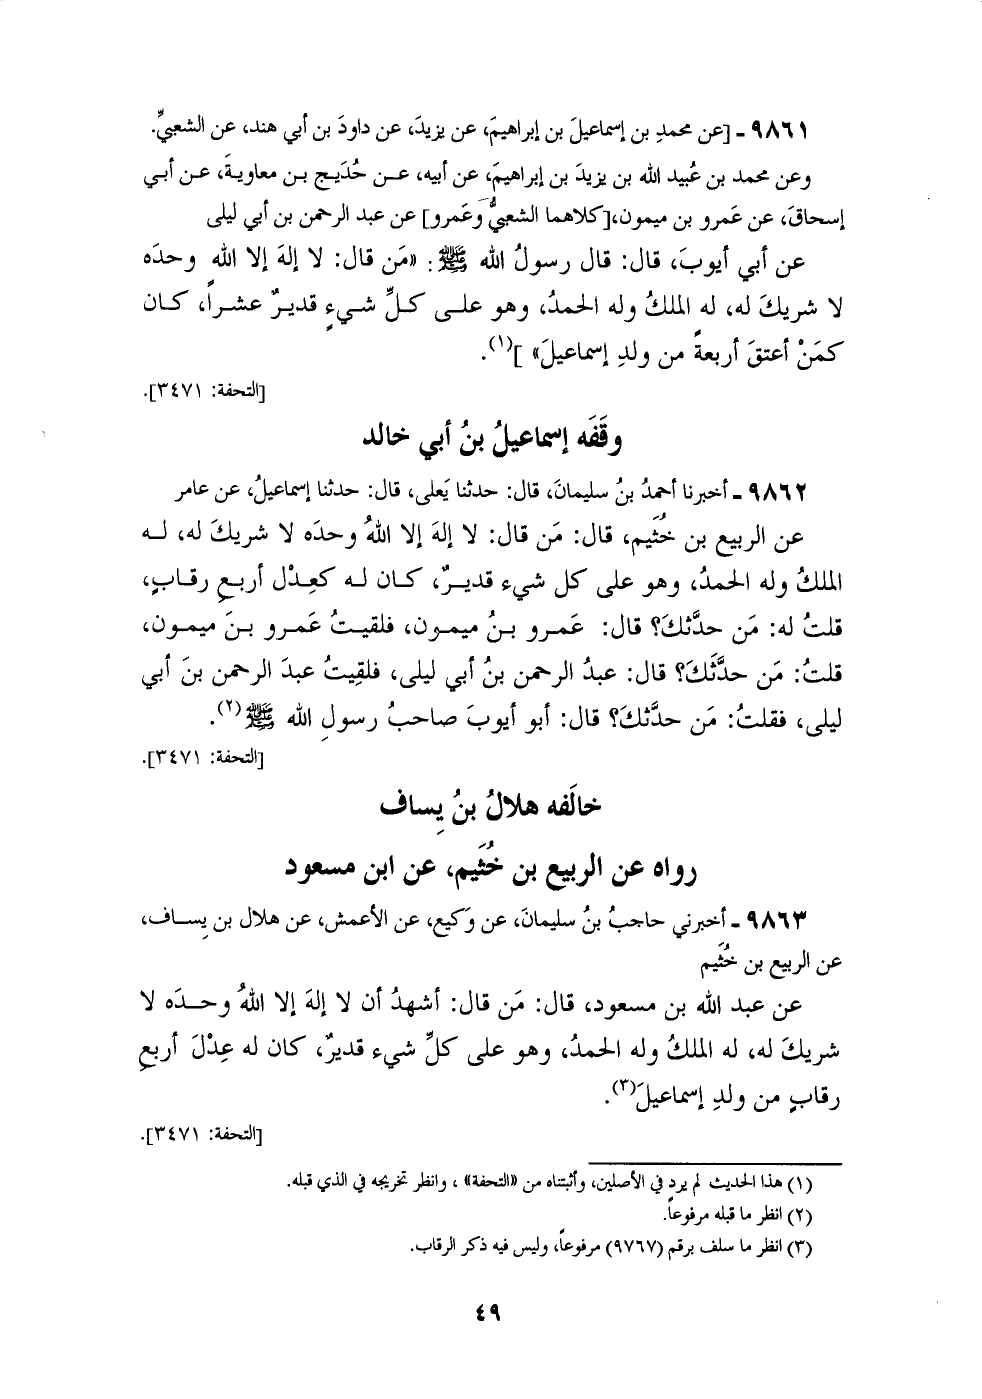 ٩٨٦١ ـ [عن محمدِ بن إسماعيلَ بن إبراهيمَ، عن يزيدَ، عن داودَ بن أبي هند، عن الشعبيِّ.
وعن محمد بن عُبيد الله بن يزيدَ بن إبراهيمَ، عن أبيه، عن حُدَيج بن معاويةَ، عن أبي
إسحاقَ، عن عَمرو بن ميمون،[كلاهما الشعبيُّ وَعَمرو] عن عبد الرحمن بن أبي ليلى
عن أبي أيوبَ، قال: قال رسولُ الله ﷺ: «مَن قال: لا إلهَ إلا اللهُ وحدَه
لا شريكَ له، له الملكُ وله الحمدُ، وهو على كلِّ شيءٍ قديرٌ عشراً، كان
كمَنْ أعتقَ أربعةً من ولدِ إسماعيلَ» ](١).
[التحفة: ٣٤٧١].
وقَفَه إسماعيلُ بنُ أبي خالد
٩٨٦٢ ـ أخبرنا أحمدُ بنُ سليمانَ، قال: حدثنا يَعلى، قال: حدثنا إسماعيلُ، عن عامر
عن الربيع بن خُثَيم، قال: مَن قال: لا إلهَ إلا اللهُ وحدَه لا شريكَ له، له
الملكُ وله الحمدُ، وهو على كل شيء قديرٌ، كان له كعِدْل أربعِ رقابٍ،
قلتُ له: مَن حدَّثكَ؟ قال: عَمرو بنُ ميمون، فلقيتُ عَمرو بنَ ميمون،
قلتُ: مَن حدَّثَكَ؟ قال: عبدُ الرحمن بنُ أبي ليلى، فلقِيتُ عبدَ الرحمن بنَ أبي
ليلى، فقلتُ: مَن حدَّثكَ؟ قال: أبو أيوبَ صاحبُ رسولِ الله ﷺ(٢).
[التحفة: ٣٤٧١].
خالَفه هلالُ بنُ يِساف
رواه عن الربيع بن خُثَيم، عن ابن مسعود
٩٨٦٣ ـ أخبرني حاجبُ بنُ سليمانَ، عن وَكيع، عن الأعمش، عن هلال بن يِساف،
عن الربيع بن خُثَيم
عن عبد الله بن مسعود، قال: مَن قال: أشهدُ أن لا إلهَ إلا اللهُ وحدَه لا
شريكَ له، له الملكُ وله الحمدُ، وهو على كلِّ شيء قديرٌ، كان له عِدْلَ أربعِ
رقابٍ من ولدِ إسماعيلَ(٣).
[التحفة: ٣٤٧١].
(١) هذا الحديث لم يرد في الأصلين، وأثبتناه من «التحفة» ، وانظر تخريجه في الذي قبله.
(٢) انظر ما قبله مرفوعاً.
(٣) انظر ما سلف برقم (٩٧٦٧) مرفوعاً، وليس فيه ذكر الرقاب.
٤٩